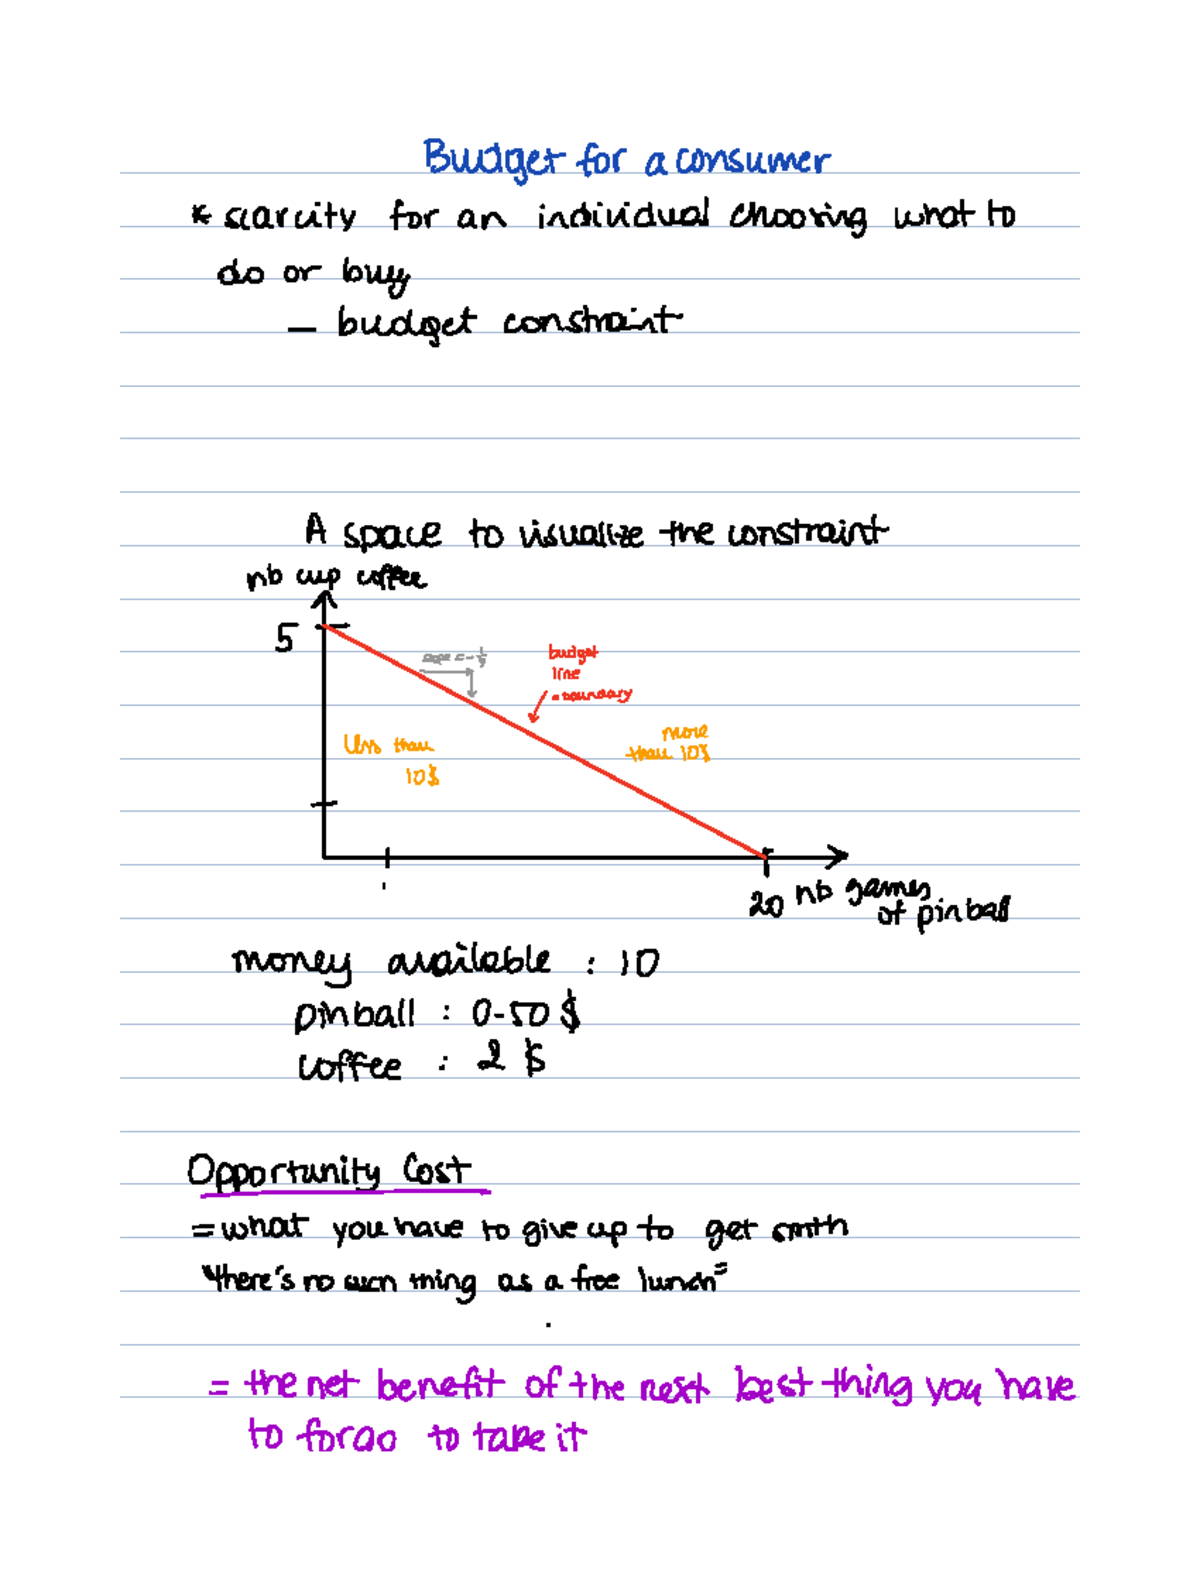 Budget for a consumer
* scarcity for an individual choosing what to
do or buy
— budget constraint
A space to visualize the constraint
nb cup coffee
5
slope = -1/4
budget
line
= boundary
more
than 10$
less than
10$
20 nb games
of pinball
money available : 10
pinball : 0-50 $
coffee : 2 $
Opportunity Cost
= what you have to give up to get smth
"there's no such thing as a free lunch"
= the net benefit of the next best thing you have
to forgo to take it